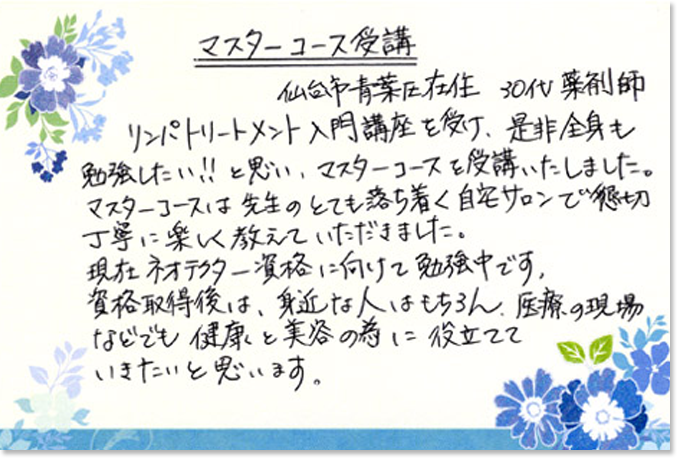 マスターコース受講
仙台市青葉区在住 30代 薬剤師
リンパトリートメント入門講座を受け、是非全身も
勉強したい!!と思い、マスターコースを受講いたしました。
マスターコースは先生のとても落ち着く自宅サロンで懇切
丁寧に楽しく教えていただきました。
現在ネオテクター資格に向けて勉強中です。
資格取得後は、身近な人はもちろん、医療の現場
などでも健康と美容の為に役立てて
いきたいと思います。